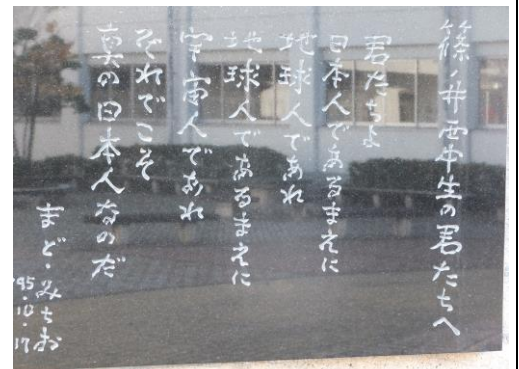 篠ノ井西中生の君たちへ
君たちよ
日本人であるまえに
地球人であれ
地球人であるまえに
宇宙人であれ
それでこそ
真の日本人なのだ
まど・みちお
'95・10・17